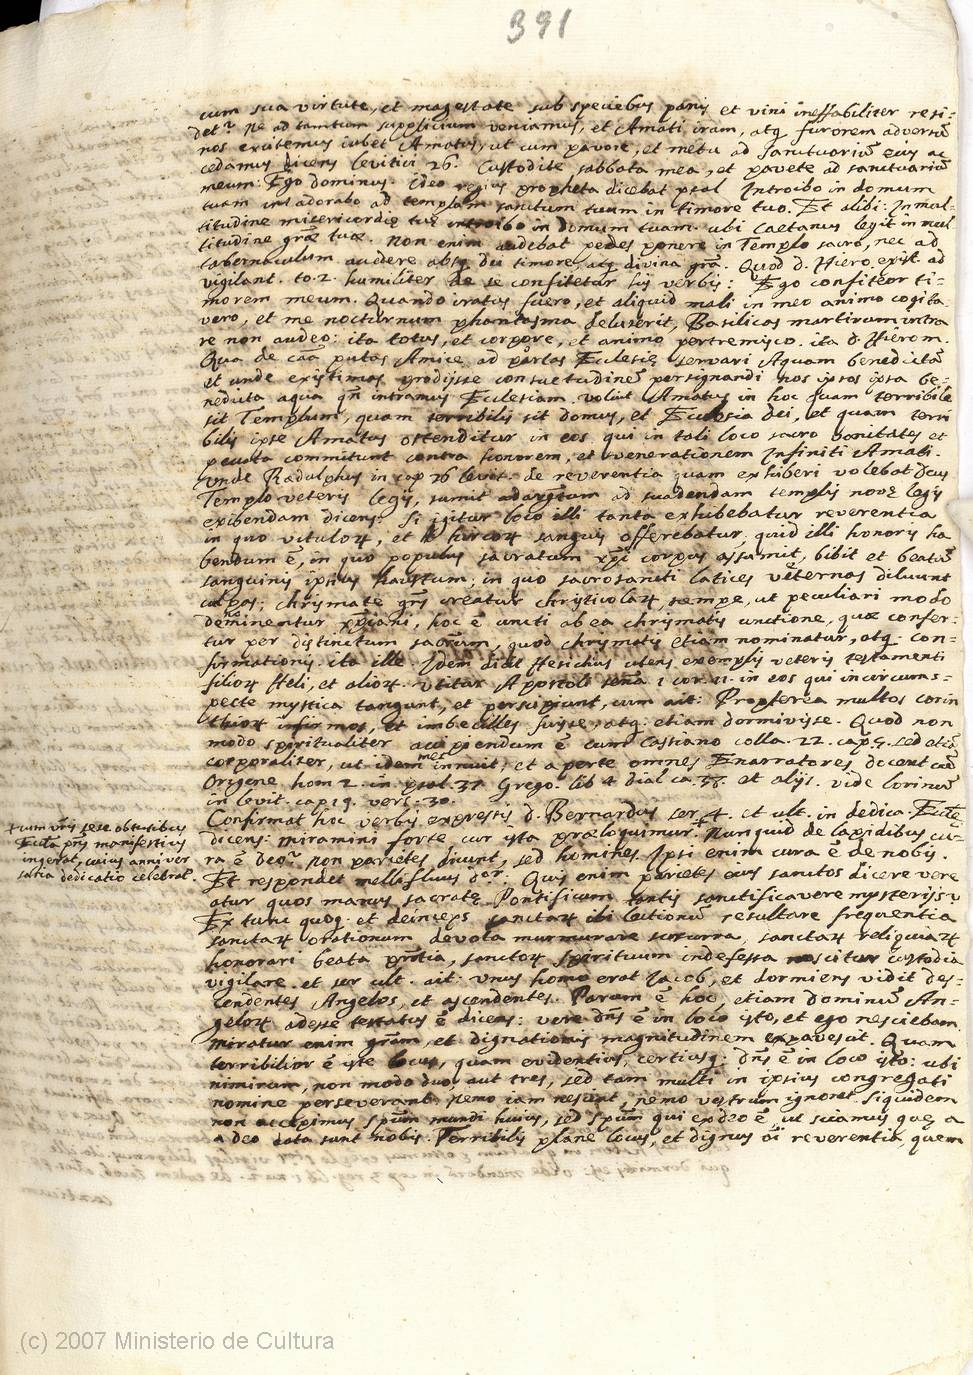 391
cum sua virtute, et magestate sub speciebus panis et vini ineffabiliter resi-
det. Ne ad tantum supplicium veniamus, et Amati iram, atq furorem adversus
nos excitemus iubet Amatus, ut cum pavore, et metu ad sanctuariũ eius ac
cedamus dicens levitici 26. Custodite sabbata mea, et pavete ad sanctuariũ
meum: Ego dominus. Ideo regius propheta dicebat psal Introibo in domum
tuam adorabo ad templum sanctum tuum in timore tuo. Et alibi: In mul-
titudine misericordię tuę introibo in domum tuam. ubi Caetanus legit in mul
titudine grãe tuae. non enim audebat pedes ponere in Templo sacro, nec ad
tabernaculum accedere absq dei timore, atq divina grã. Quod d. Hiero. ad
vigilant. to. 2. humiliter de se confitetur his verbis: Ego confiteor ti-
morem meum. Quando iratus fuero, et aliquid mali in meo animo cogita
vero, et me nocturnum phantasma deluserit, Basilicas martirum intra
re non audeo: ita totus, et corpore, et animo pertremisco. ita d. Hierom.
Qua de cãa putas Amice ad portas Ecclesię servari Aquam benedictã
et unde existimas prodijsse consuetudinẽ persignandi nos ipsos ipsa be-
nedicta aqua qñ intramus Ecclesiam. voluit Amatus in hoc quam terribile
sit Templum, quam terribilis sit domus, et Ecclesia dei, et quam terri
bilis ipse Amatus ostenditur in eos qui in tali loco sacro vanitates et
peccata committunt contra honorem, et venerationem Infiniti Amati.
vnde Radulphus in cap 26 levit. de reverentia quam exhiberi volebat Deus
Templo veteris legis, sumit ad suadendam templis novę legis
exibendam dicens: Si igitur loco illi tanta exhibebatur reverentia
in quo vituloꝝ, et hircoꝝ sanguis offerebatur, quid illi honoris ha
bendum ẽ, in quo populus sacratum xp̃i corpus assumit, bibit et beatũ
sanguinis ipsius haustum, in quo sacrosancti latices veternas diluunt
culpas; chrismate creatur christicolaꝝ, semper, ut peculiari modo
denominentur xp̃iani, hoc ẽ uncti ab ea chrismatis unctione, quae confer-
tur per distinctum sacr̃um, quod chrismatis etiam nominatur, atq: con-
firmationis. ita ille. Idem dicit Hesichius utens exemplis veteris testamenti
filioꝝ Heli, et alioꝝ. vtitur Apostoli 1 cor. 11. in eos qui incircuns-
pecte mystica tangunt, et percipiunt, cum ait: Propterea multos corin
thioꝝ infirmos, et imbecilles fuisse, atq: etiam dormivisse. Quod non
modo spiritualiter accipiendum ẽ cum Cassiano colla. 22. cap. 5. sed etiã
corporaliter, ut idemmet innuit, et aperte omnes Enarratores docent cũ
Origene hom 2. in psal. 37 Grego. lib 4 dial ca. et alijs. vide Lorinũ
in levit. cap 19. vers. 30.
Confirmat hoc verbis expressis d. Bernardus ser. 4. et ult. in dedica. Eccle.
dicens: miramini forte cur ista praeloquimur. Nunquid de lapidibus cu-
ra ẽ Deo? non parietes dicunt, sed homines. Ipsi enim cura ẽ de nobis.
Et respondet mellifluus dor.: Quis enim parietes eius sanctos dicere vere
atur quos manus sacratę Pontificum tantis sanctificavere mysterijs
Ex tunc quoq: et deinceps sanctaꝝ ibi lectionũ resultare frequentia
sanctaꝝ orationum devota murmurare susurra, sanctaꝝ reliquiaꝝ
honorari beata, sanctoꝝ spirituum indefessa noscitur custodia
vigilare. et ser ult. ait: vnus homo erat Jacob, et dormiens vidit des-
cendentes Angelos, et ascendentes. Parum ẽ hoc, etiam dominũ An-
geloꝝ adesse testatus ẽ dicens: vere dñs ẽ in loco isto, et ego nesciebam.
miratur enim grãm, et dignationis magnitudinem expavescit. Quam
terribilior ẽ iste locus, quam evidentius, certiusq: dñs ẽ in loco isto: ubi
nimirum, non modo duo, aut tres, sed tam multi in ipsius congregati
nomine perseverant. nemo iam nesciat, nemo vestrum ignoret siquidem
non accepimus spũm mundi huius, sed spũm qui ex deo ẽ, ut sciamus quę a
a deo data sunt nobis. Terribilis plane locus, et dignus oĩ reverentia, quem
cum vr̃is sese obtutibus
manifestius
ingerat, cuius anniver
saria dedicatio celebrat.
(c) 2007 Ministerio de Cultura